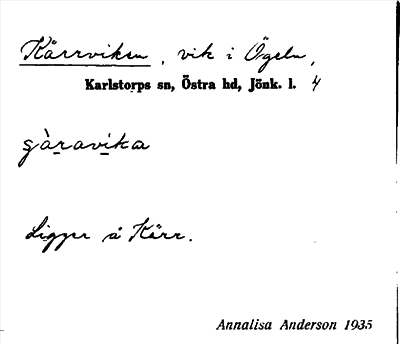 Kärrviken, vik i Ögeln,
Karlstorps sn, Östra hd, Jönk. l. 4
Ligger å Kärr.
Annalisa Anderson 1935